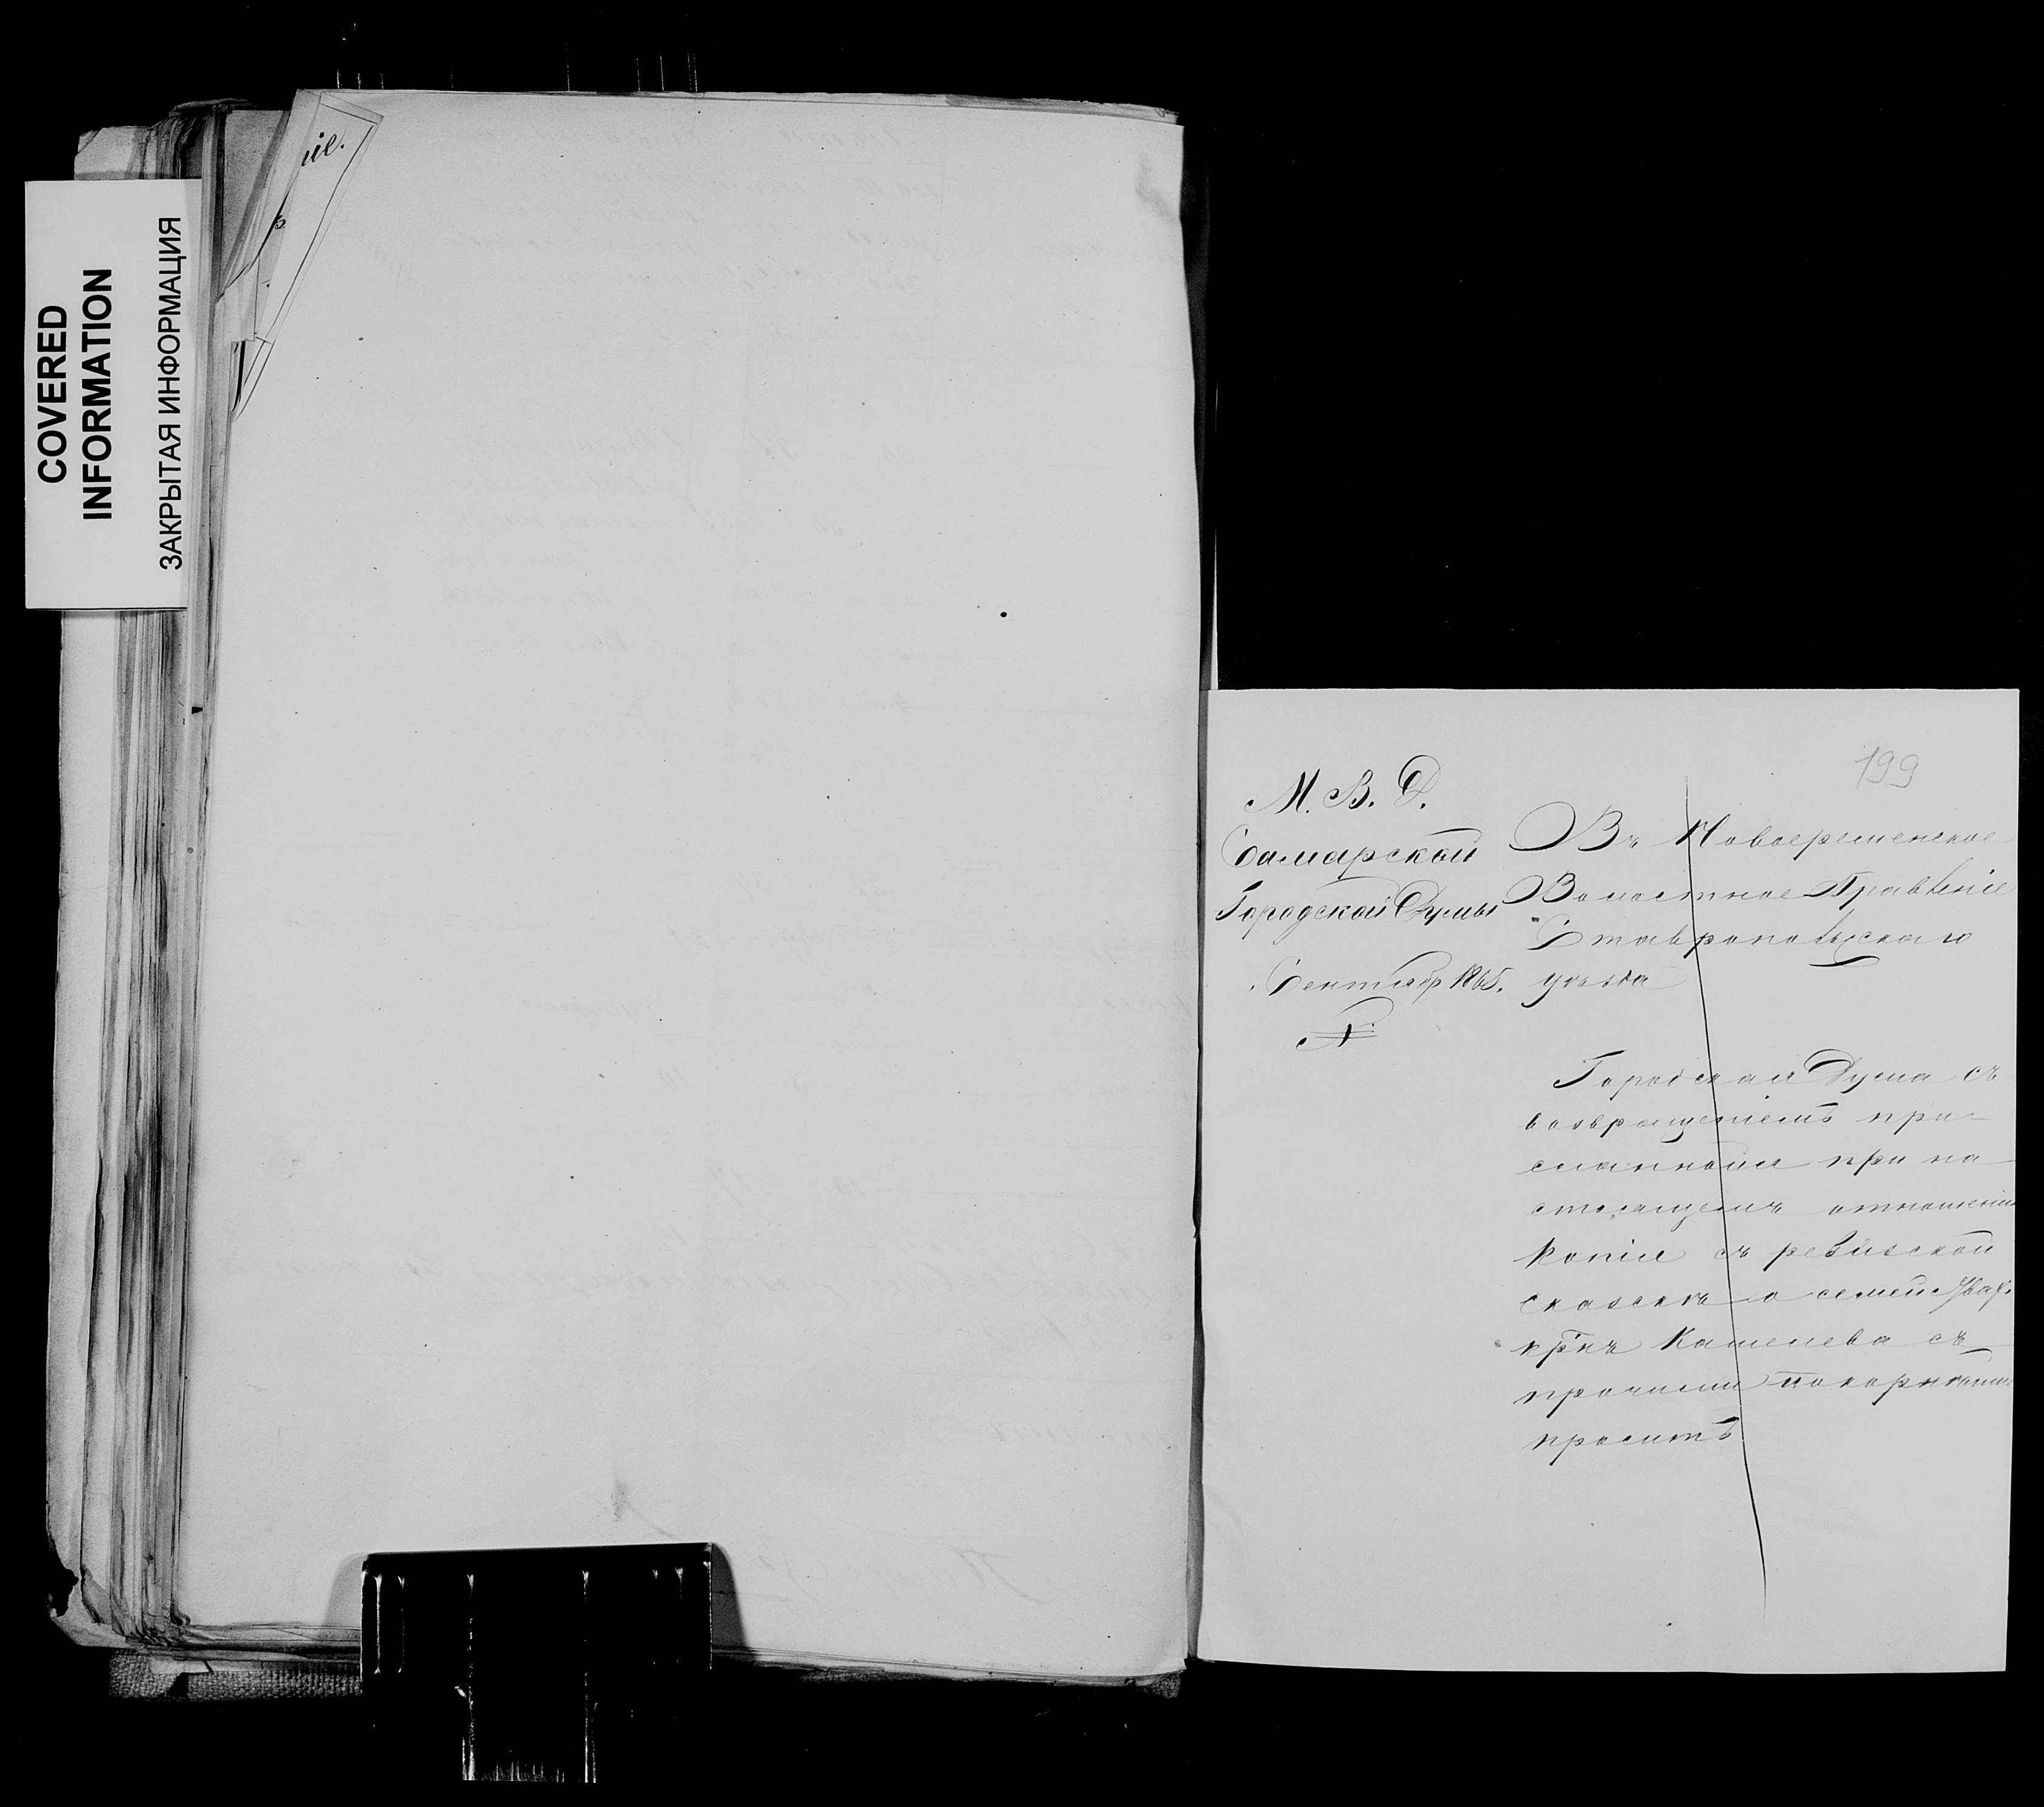 COVERED
INFORMATION
ЗАКРЫТАЯ ИНФОРМАЦИЯ
іе.
199
М. В. Д.
Самарской
Городской Думы
Сентября 1865.
№
Въ Новоеремкинское
Волостное Правленіе
Ставропольскаго
уѣзда
Городская Дума съ
возвращеніемъ при-
сланной при на-
стоящемъ отношеніи
копіи съ ревизской
сказски о семей
крнъ Кашелева съ
прочими покорнѣйше
проситъ